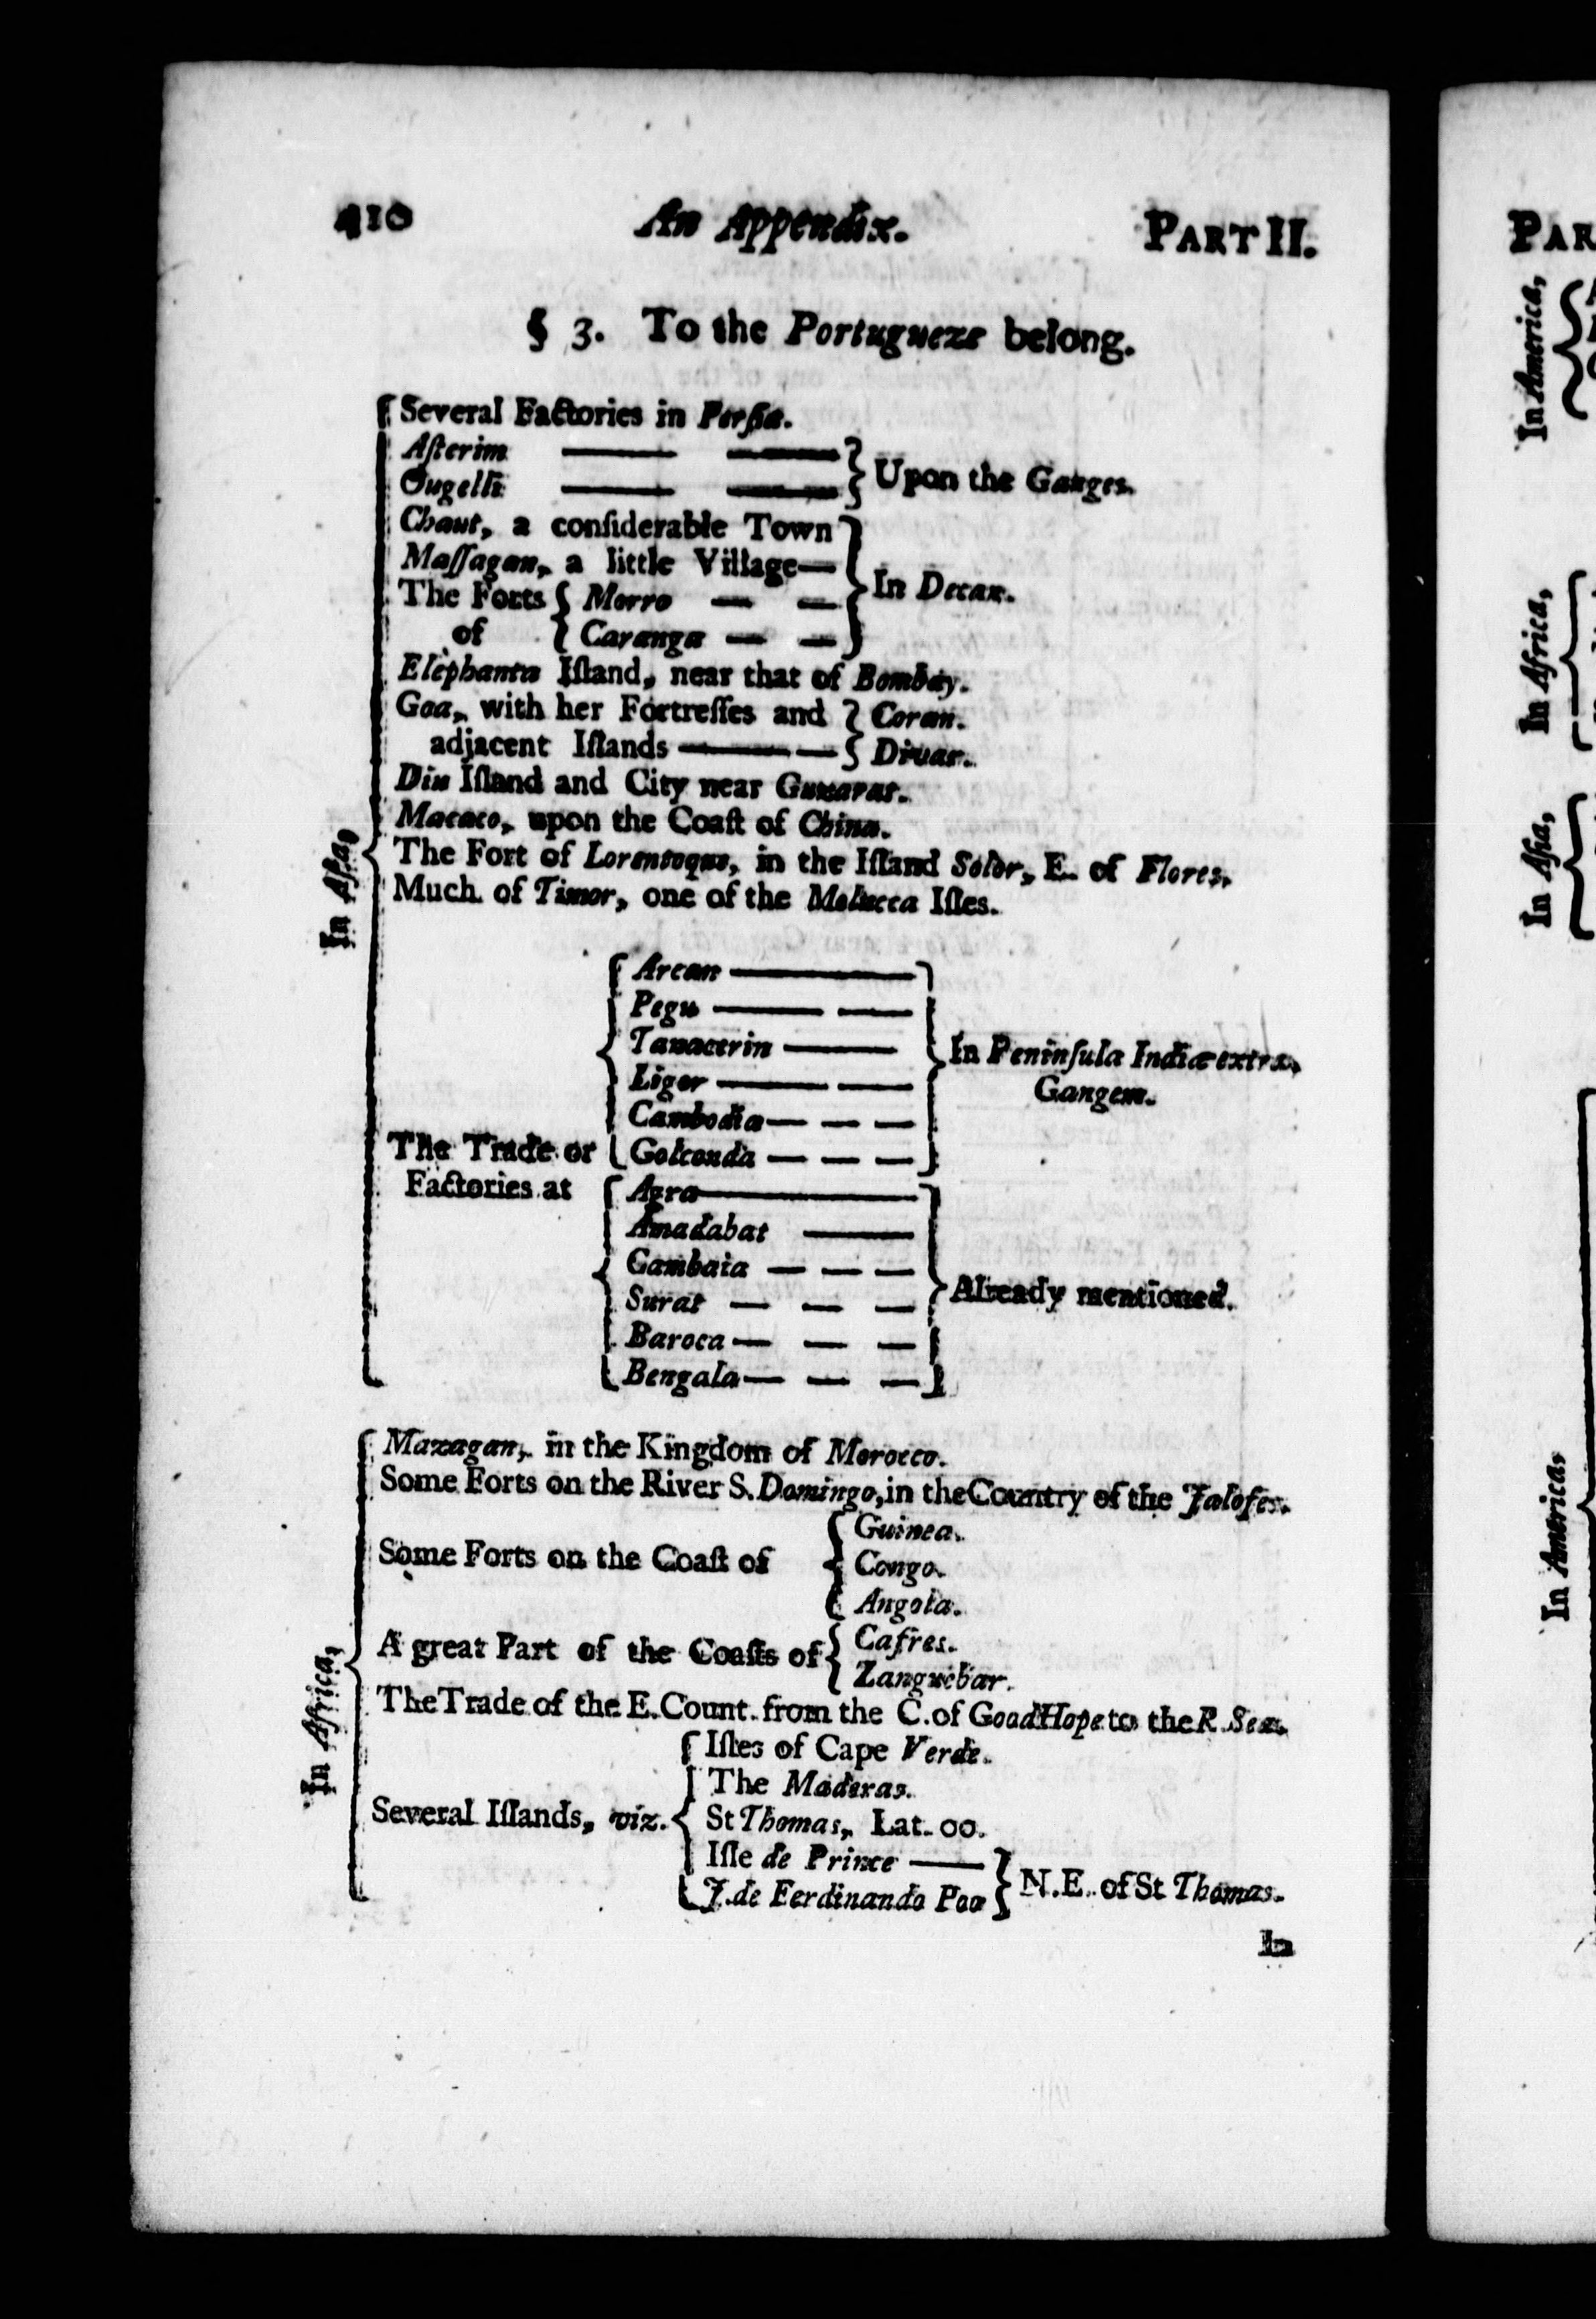 410 An Appendix. PART II.
§ 3. To the Portugueze belong.
In Asia,
Several Factories in Persia.
Aſterim
Ougelli
Upon the Ganges.
Chaut, a conſiderable Town
Maſſagan, a little Village—
The Forts of
Morro — —
Caranga — —
In Decan.
Elephanta Iſland, near that of Bombay.
Goa, with her Fortreſſes and
adjacent Iſlands
Coran.
Divar.
Diu Iſland and City near Guzarat.
Macaco, upon the Coaſt of China.
The Fort of Lorentoque, in the Iſland Solor, E. of Flores.
Much of Timor, one of the Molucca Iſles.
The Trade or
Factories at
Arcan
Pegu
Tanacerin
Ligor
Cambodia
Golconda
In Peninſula Indiæ extra
Gangem.
Agra
Amadabat
Cambaia
Surat
Baroca
Bengala
Already mentioned.
In Africa,
Mazagan, in the Kingdom of Morocco.
Some Forts on the River S. Domingo, in the Country of the Jalofes.
Some Forts on the Coaſt of
Guinea.
Congo.
Angola.
A great Part of the Coaſts of
Cafres.
Zanguebar.
The Trade of the E. Count. from the C. of Good Hope to the R. Sea.
Several Iſlands, viz.
Iſles of Cape Verde.
The Maderas.
St Thomas, Lat. 00.
Iſle de Prince
J. de Ferdinando Poo
N. E. of St Thomas.
In
PAR
In America,
In Africa,
In Aſia,
In America,